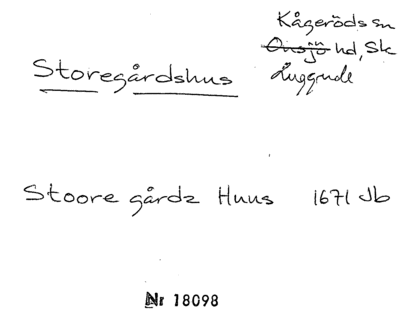 Kågeröds sn
Onsjö hd, Sk
Luggude
Storegårdshus
Stoore gårdz Huus 1671 Jb
Nr 18098